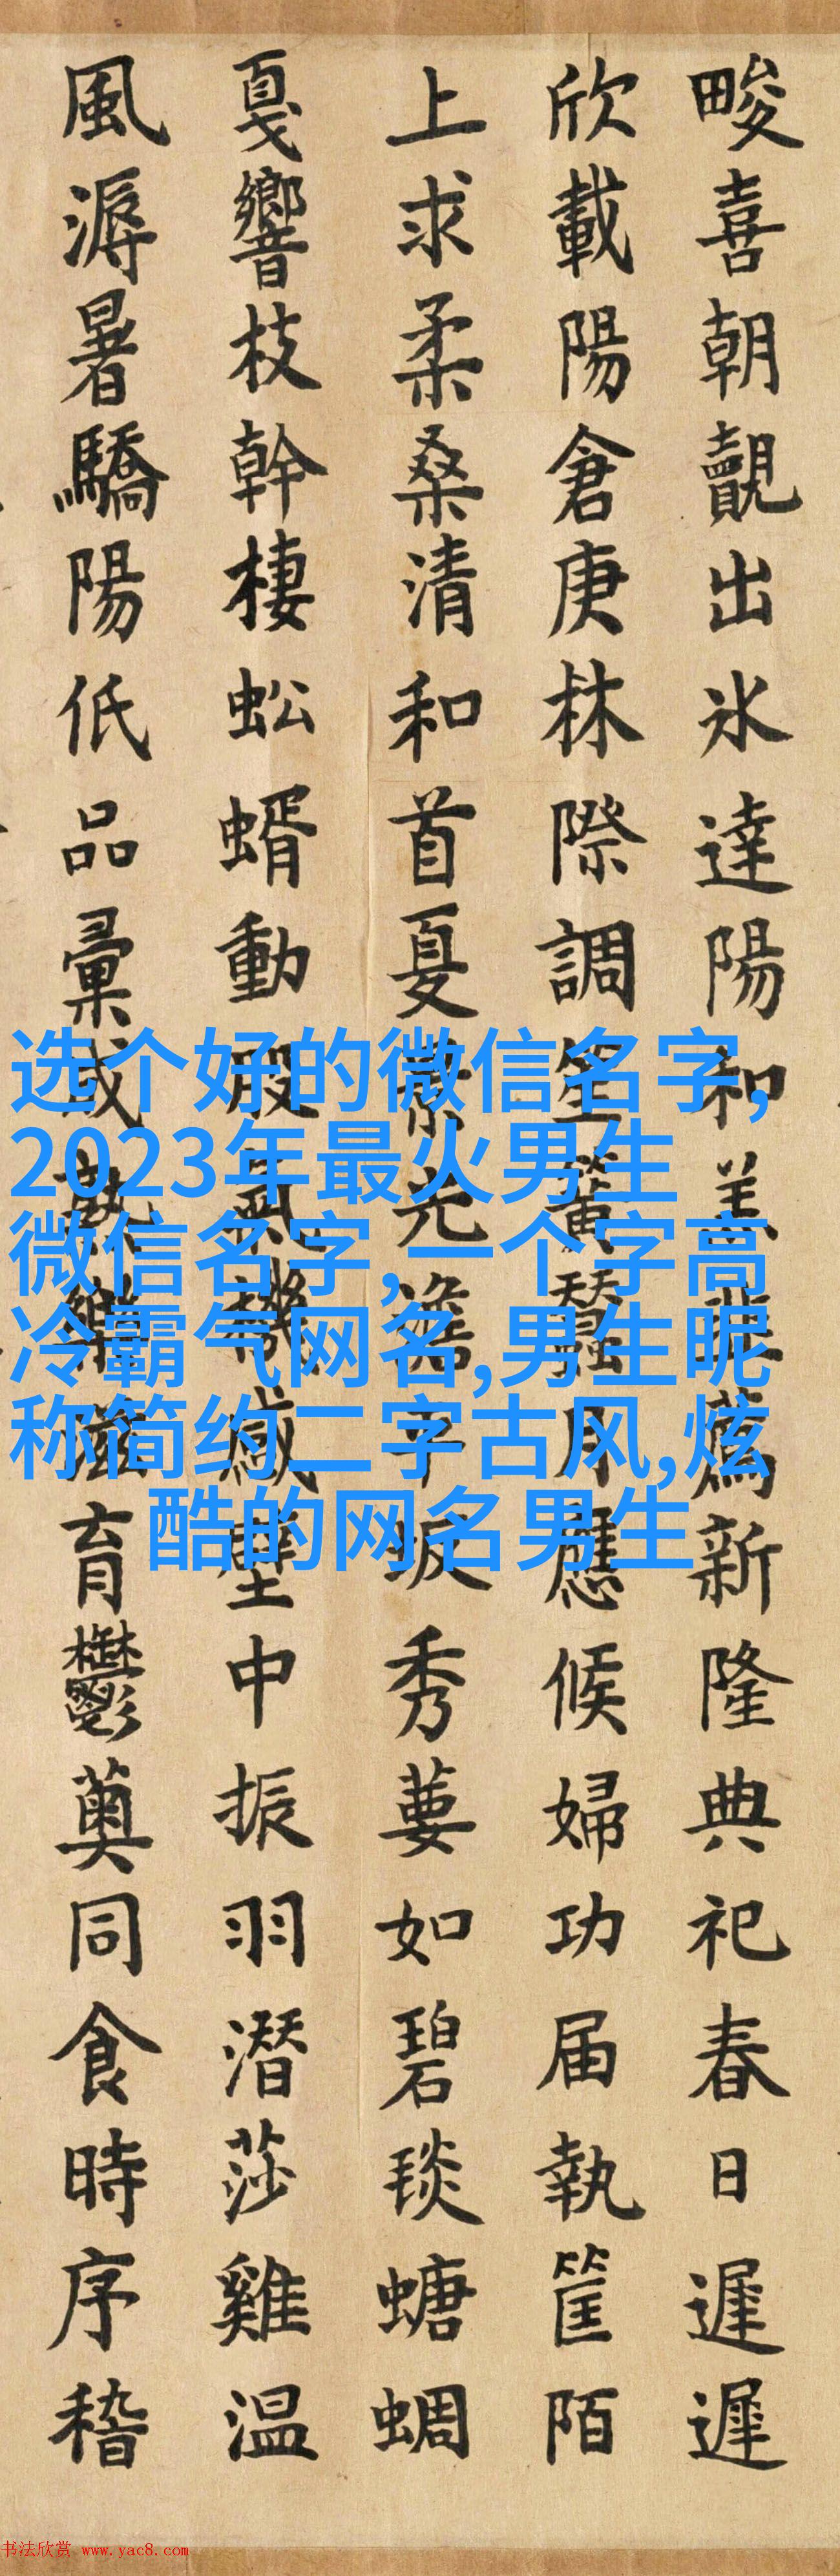 畯喜朝覿出氷達陽和羔韭薦新隆典祀春日遲遲
欣載陽倉庚林際調笙簧蠶月應候婦功届執筐陌
上求柔桑清和首夏景光澹平坂秀葽如碧琰螗蜩
戛響枝幹棲蚣蝑動股氣機感壁中振羽潛莎雞温
風溽暑驕陽低品彙樂滋育鬱薁同食時序稽
选个好的微信名字,
2023年最火男生
微信名字,一个字高
冷霸气网名,男生昵
称简约二字古风,炫
酷的网名男生
书法欣赏 www.yac8.com